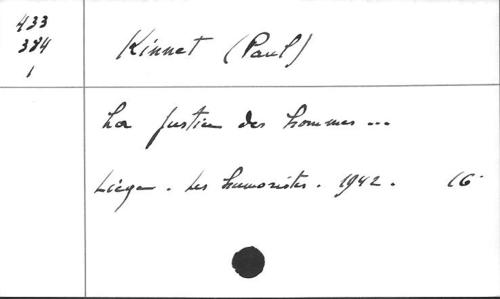 433
384
1
Kinnet (Paul)
La Justice des hommes ...
Liège. Les humoristes. 1942. 16°